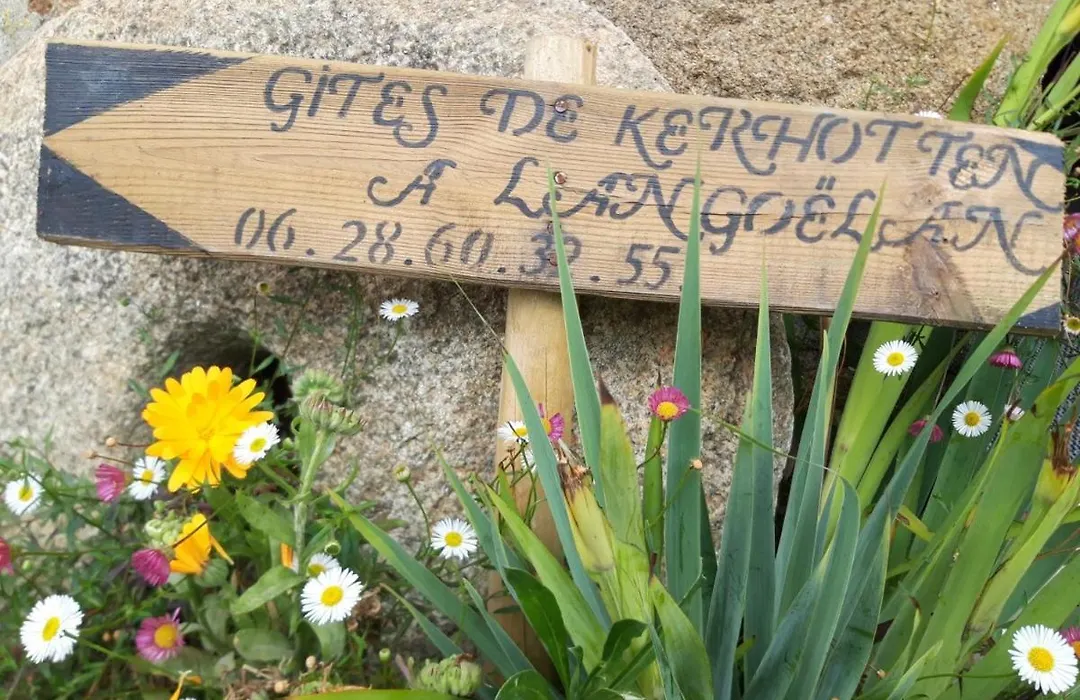 GÎTES DE KERHOTTEN
À LANGOËLAN
06.28.60.32.55